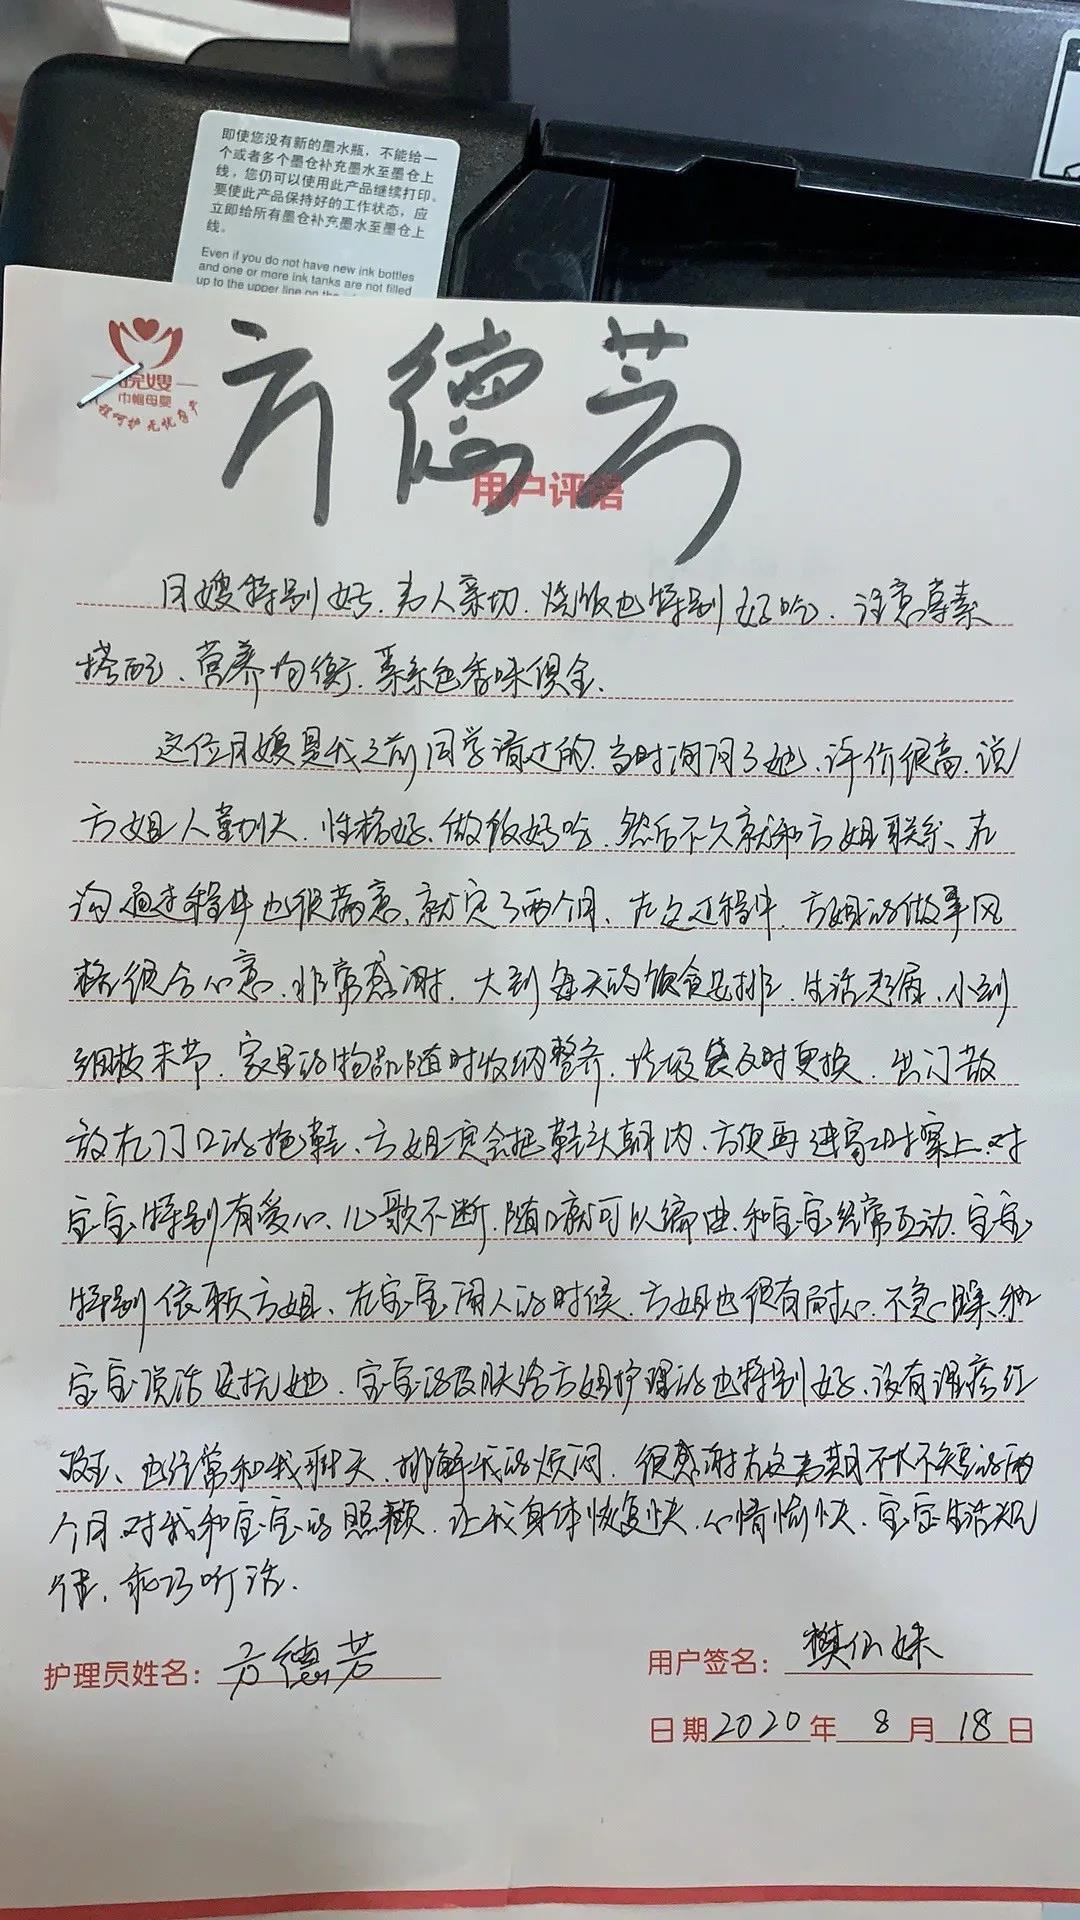 即使您没有新的墨水瓶，不能给一
个或者多个墨仓补充墨水至墨仓上
线，您仍可以使用此产品继续打印。
要使此产品保持好的工作状态，应
立即给所有墨仓补充墨水至墨仓上
线。
Even if you do not have new ink bottles
and one or more ink tanks are not filled
up to the upper line on the
皖嫂
巾帼母婴
方德芳
用户评语
月嫂特别好、为人亲切、烧饭也特别好吃、注意荤素
搭配、营养均衡、菜系色香味俱全、
这位月嫂是我之前同学请过的、当时询问了她、评价很高、说
方姐人勤快、性格好、做饭好吃、然后不久就和方姐联系、在
沟通过程中也很满意、就定了两个月、在这过程中、方姐的做事风
格很合心意、非常感谢、大到每天的饮食安排、生活起居、小到
细枝末节、家里的物品随时收纳整齐、垃圾袋及时更换、出门散
放在门口的拖鞋、方姐一定会把鞋头朝内、方便再进家时穿上、对
宝宝特别有爱心、儿歌不断、随口就可以编曲、和宝宝经常互动、宝宝
特别依赖方姐、在宝宝闹人的时候、方姐也很有耐心、不急躁、和
宝宝说话安抚她、宝宝的皮肤给方姐护理的也特别好、没有湿疹红
、也经常和我聊天、排解我的烦闷、很感谢在这为期不长不短的两
个月、对我和宝宝的照顾、让我身体恢复快、心情愉快、宝宝生活规
律、乖巧听话、
护理员姓名：方德芳
用户签名：樊仙妹
日期2020年8月18日